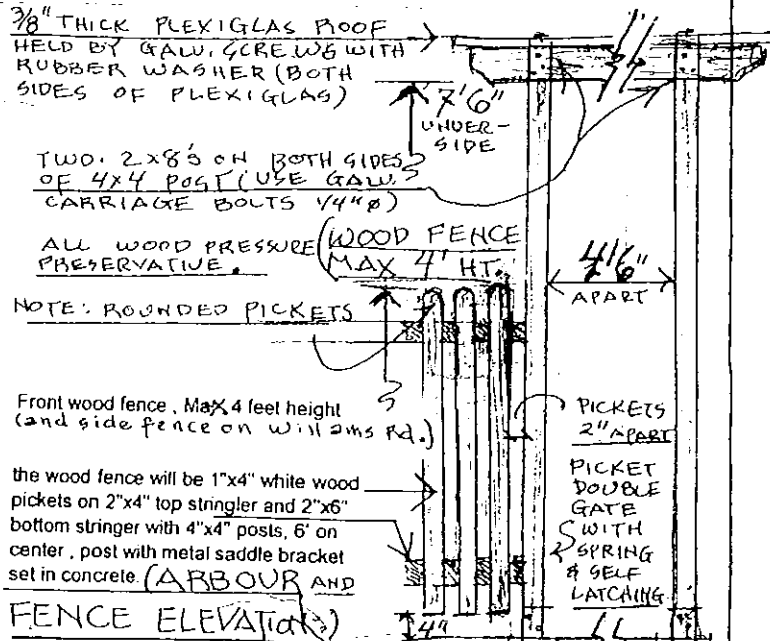 3/8" THICK PLEXIGLAS ROOF
HELD BY GALV. SCREWS WITH
RUBBER WASHER (BOTH
SIDES OF PLEXIGLAS)
7'6"
UNDER-
SIDE
TWO. 2x8'S ON BOTH SIDES
OF 4x4 POST (USE GALV.
CARRIAGE BOLTS 1/4"ø)
ALL WOOD PRESSURE
PRESERVATIVE.
(WOOD FENCE
MAX 4' HT.
4'6"
APART
NOTE: ROUNDED PICKETS
Front wood fence , MaX 4 feet height
(and side fence on Willams Rd.)
PICKETS
2" APART
the wood fence will be 1"x4" white wood
pickets on 2"x4" top stringler and 2"x6"
bottom stringer with 4"x4" posts, 6' on
center , post with metal saddle bracket
set in concrete.
PICKET
DOUBLE
GATE
WITH
SPRING
& SELF
LATCHING
(ARBOUR AND
FENCE ELEVATION)
4"